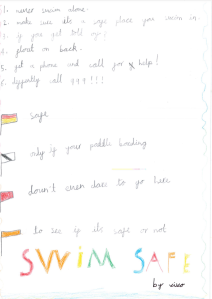 1. never swim alone.
2. make sure it's a safe place you swim in.
3. if you get told
4. float on back.
5. get a phone and call for help!
6. call 999!!!
safe
only if your paddle boarding
doun't even dare to go here
to see if it's safe or not
SWIM SAFE
by